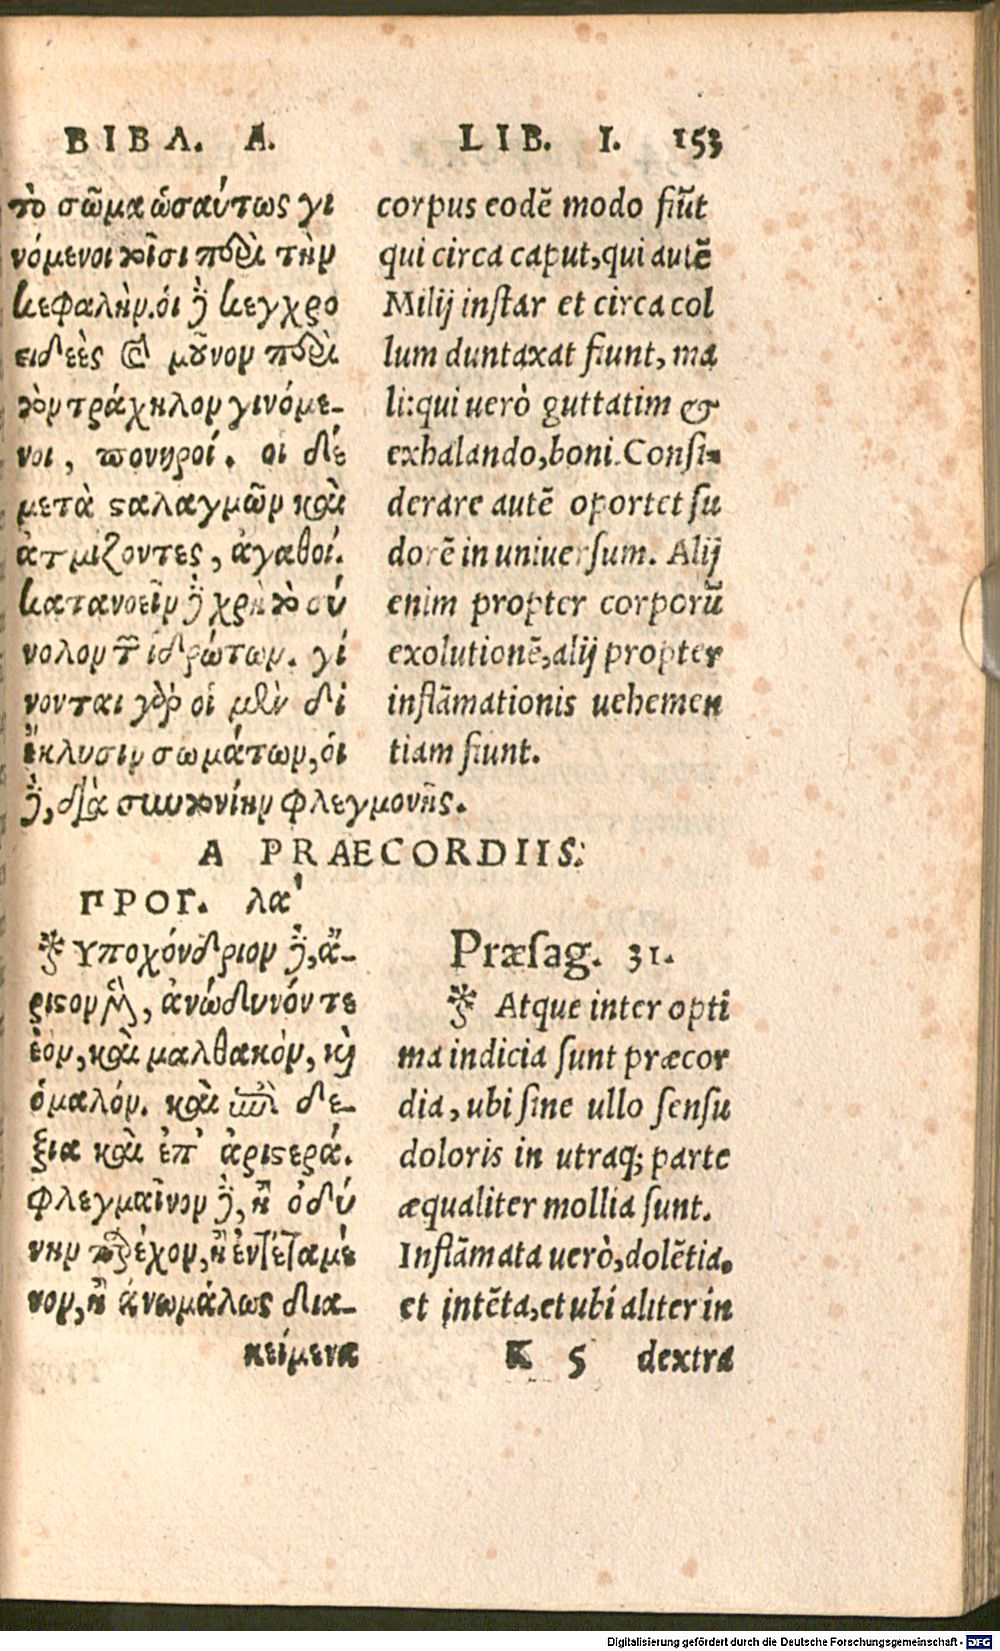 ΒΙΒΛ. Α.
τὸ σῶμα ὡσαύτως γι
νόμενοι τοῖσι περὶ τὴν
κεφαλήν. οἱ δὲ κεγχρο
ειδεὲς καὶ μοῦνον περὶ
τὸν τράχηλον γινόμε-
νοι, πονηροί. οι δέ
μετὰ ϛαλαγμῶν καὶ
ἀτμίζοντες, ἀγαθοί.
κατανοεῖν δὲ χρὴ τὸ σύ
νολον τῶν ἱδρώτων. γί
νονται γὰρ οἱ μὲν δἰ
ἔκλυσιν σωμάτων, οἱ
δὲ, διὰ συντονίην φλεγμονῆς.
LIB. I. 153
corpus eodē modo fiũt
qui circa caput, qui autē
Milij instar et circa col
lum duntaxat fiunt, ma
li: qui uerò guttatim &
exhalando, boni. Consi-
derare autē oportet su
dorē in uniuersum. Alij
enim propter corporũ
exolutionē, alij propter
inflāmationis uehemen
tiam fiunt.
A PRAECORDIIS.
ΠΡΟΓ. λα'
Υποχόνδριον δὲ, ἄ-
ριϛον μὲν, ἀνώδυνόν τε
ἐὸν, καὶ μαλθακόν, καὶ
ὁμαλόν. καὶ ἐπὶ δε-
ξια καὶ ἐπ' ἀριϛερά.
φλεγμαῖνον δὲ, ἢ ὀδύ
νην παρέχον, ἢ ἐντεταμέ
νον, ἢ ἀνωμάλως δια-
κείμενα
Præsag. 31.
Atque inter opti
ma indicia sunt præcor
dia, ubi sine ullo sensu
doloris in utraq; parte
æqualiter mollia sunt.
Inflāmata uerò, dolētia.
et intēta, et ubi aliter in
K 5 dextra
Digitalisierung gefördert durch die Deutsche Forschungsgemeinschaft - DFG